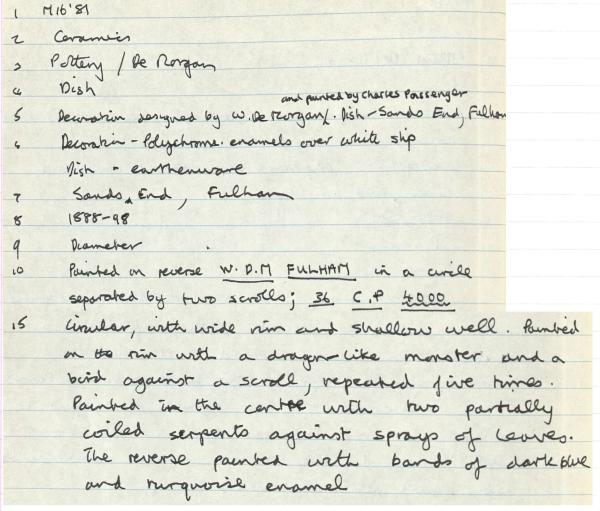 1 M16'81
2 Ceramics
3 Pottery / De Morgan
4 Dish
and painted by Charles Passenger
5 Decoration designed by W. De Morgan/. Dish - Sands End, Fulham
6 Decoration - Polychrome enamels over white slip
Dish - earthenware
7 Sands End, Fulham
8 1888-98
9 Diameter
10 Painted on reverse W. D. M FULHAM in a circle
separated by two scrolls; 36 C.P 4000
15 Circular, with wide rim and shallow well. Painted
on the rim with a dragon-like monster and a
bird against a scroll, repeated five times.
Painted in the centre with two partially
coiled serpents against sprays of leaves.
The reverse painted with bands of dark blue
and turquoise enamel